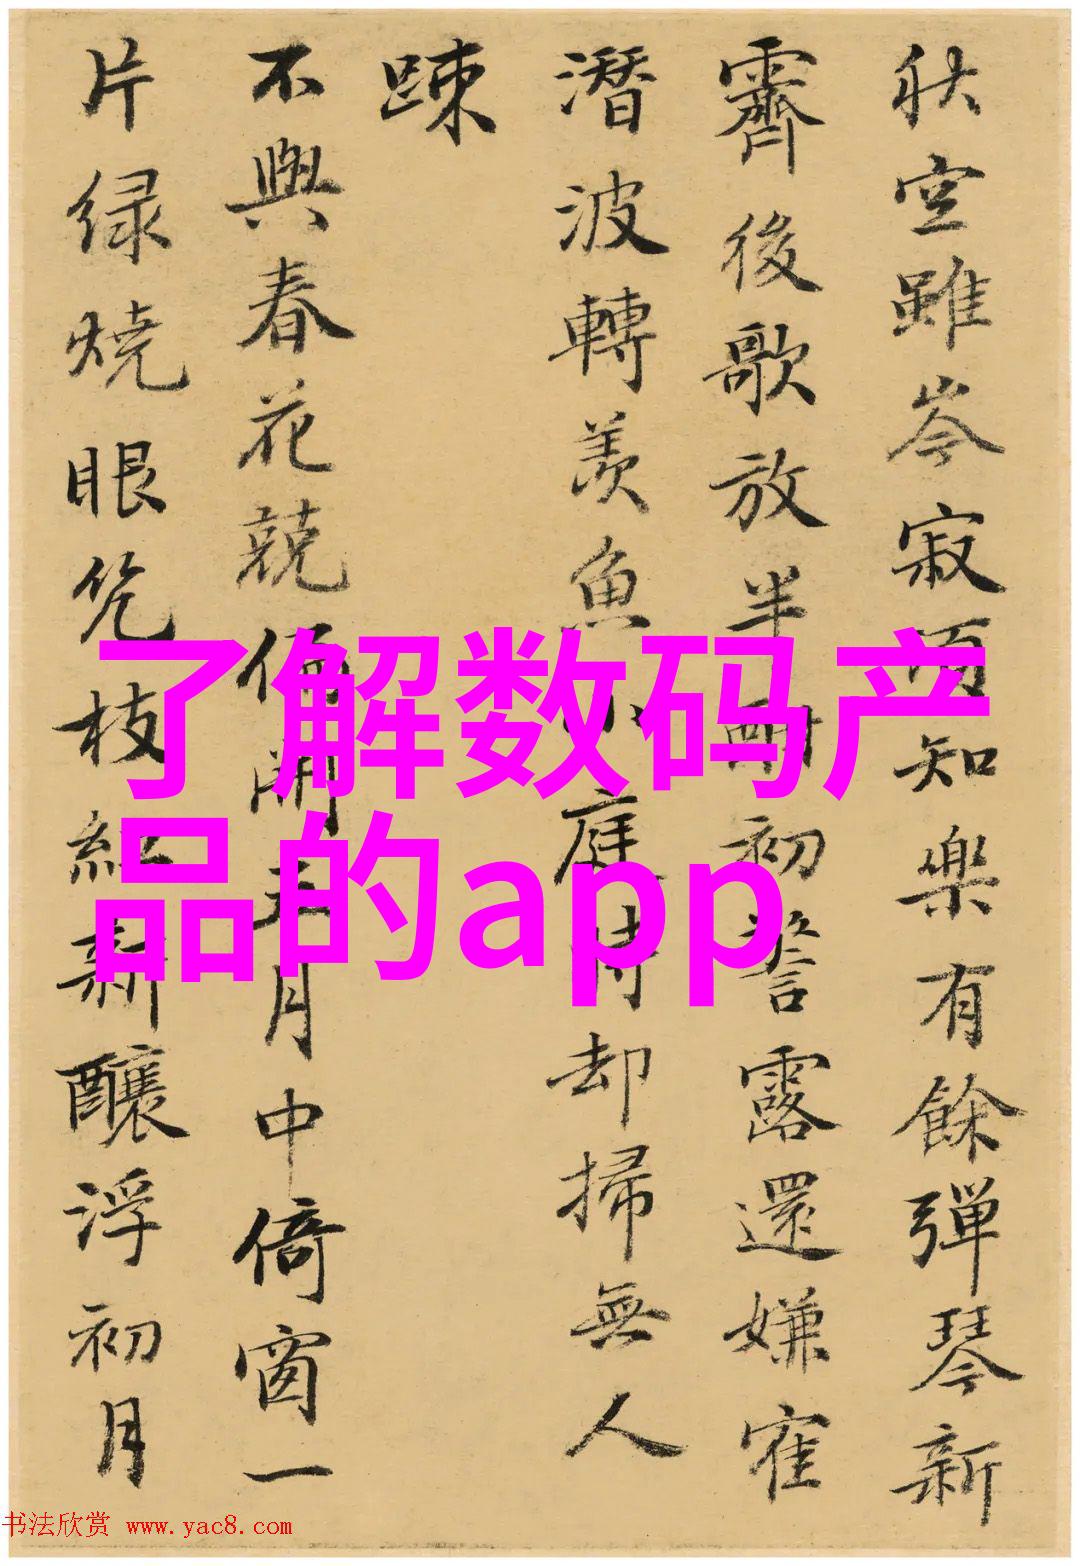 秋空雖岑寂而知樂有餘彈琴新
霽後歌放半酣初警露還嫌窄
潛波轉羨魚小庭時却掃無人
踈
不與春花競偏開五月中倚窗一
片緑燒眼幾枝紅新釀浮初月
了解数码产
品的app
书法欣赏 www.yac8.com